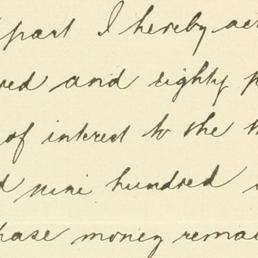 part I hereby ac
red and eighty p
of interest to the
d nine hundred
hase money remai